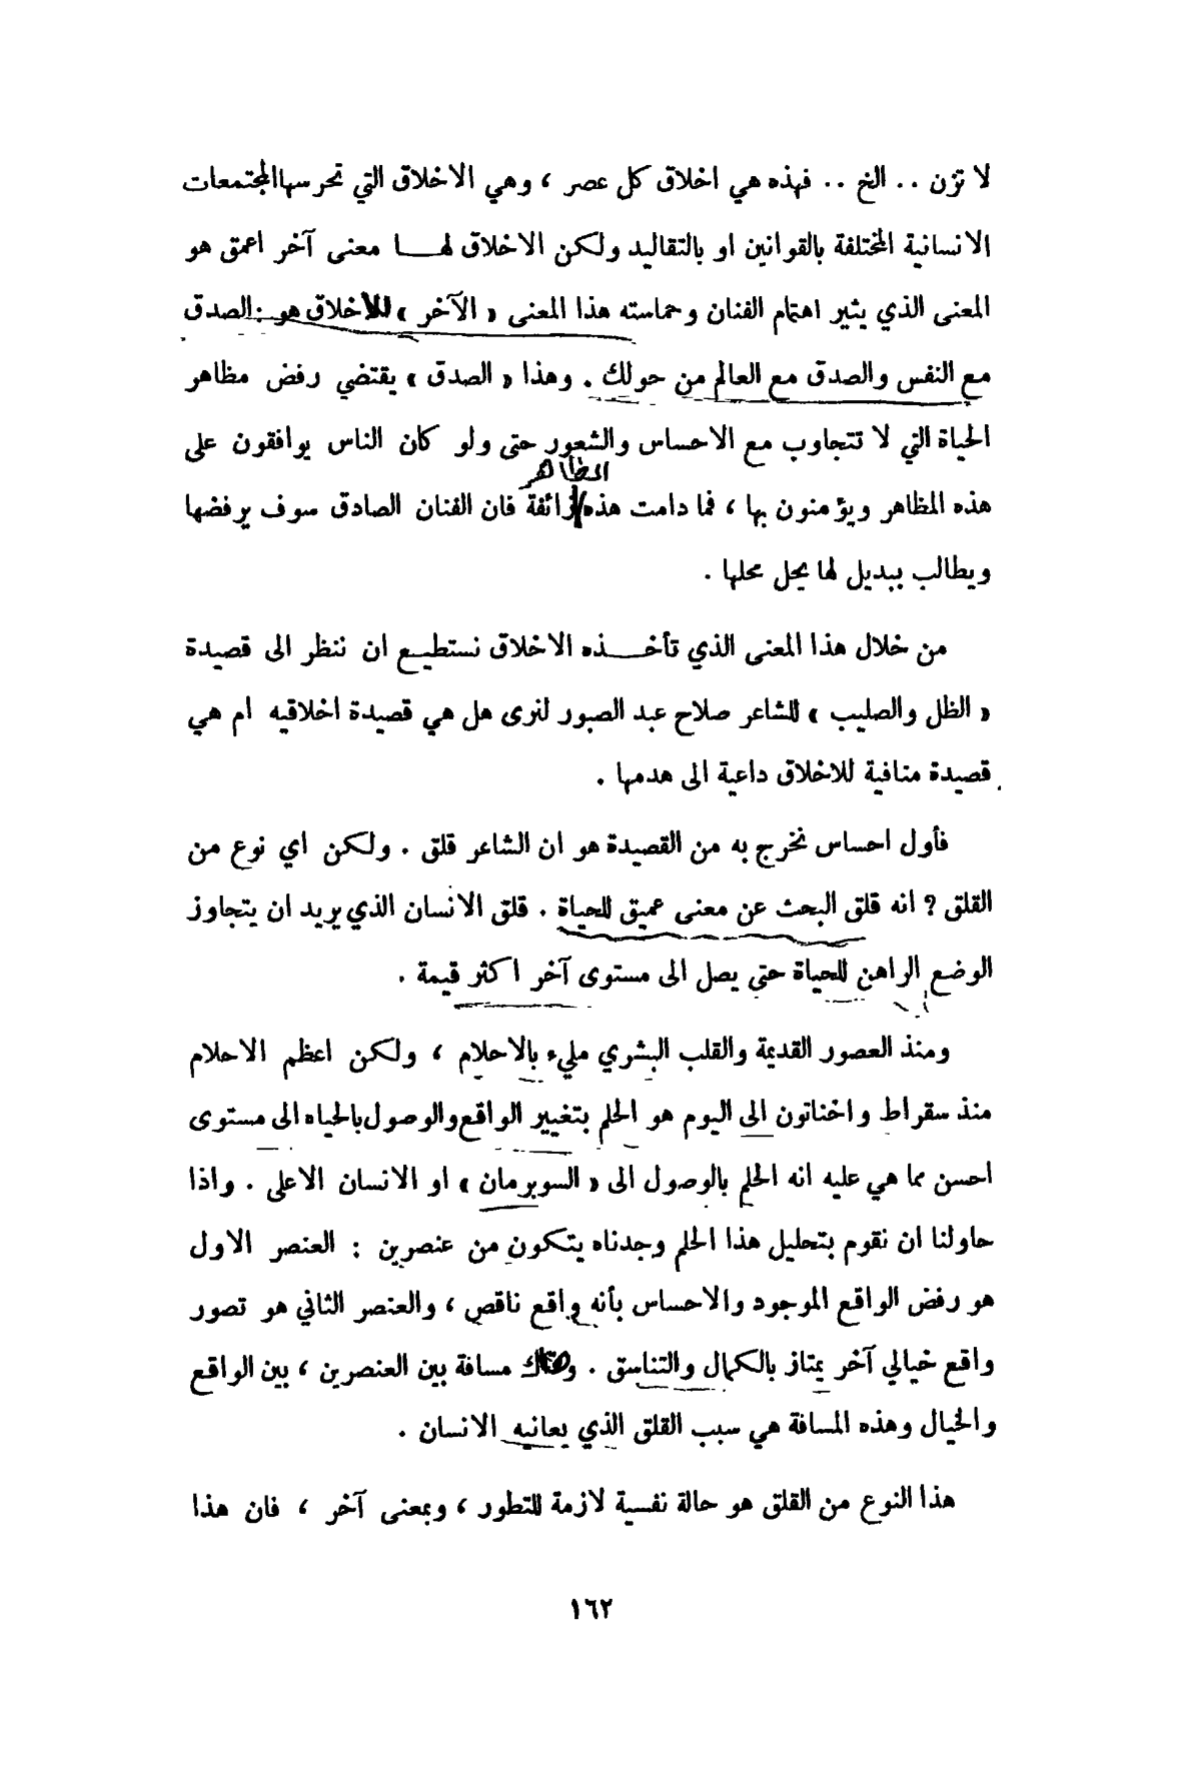 لا تزن .. الخ .. فهذه هي اخلاق كل عصر ، وهي الاخلاق التي تحرسها المجتمعات
الانسانية المختلفة بالقوانين او بالتقاليد ولكن الاخلاق لهــا معنى آخر اعمق هو
المعنى الذي يثير اهتمام الفنان وحماسته هذا المعنى « الآخر » للاخلاق هو : الصدق
مع النفس والصدق مع العالم من حولك . وهذا « الصدق » يقتضي رفض مظاهر
الحياة التي لا تتجاوب مع الاحساس والشعور حتى ولو كان الناس يوافقون على
المظاهر
هذه المظاهر ويؤمنون بها ، فما دامت هذه / زائفة فان الفنان الصادق سوف يرفضها
ويطالب ببديل لها يحل محلها .
من خلال هذا المعنى الذي تأخــذه الاخلاق نستطيـع ان ننظر الى قصيدة
« الظل والصليب » للشاعر صلاح عبد الصبور لنرى هل هي قصيدة اخلاقيه ام هي
قصيدة منافية للاخلاق داعية الى هدمها .
فأول احساس نخرج به من القصيدة هو ان الشاعر قلق . ولكن اي نوع من
القلق ? انه قلق البحث عن معنى عميق للحياة . قلق الانسان الذي يريد ان يتجاوز
الوضع الراهن للحياة حتى يصل الى مستوى آخر اكثر قيمة .
ومنذ العصور القديمة والقلب البشري مليء بالاحلام ، ولكن اعظم الاحلام
منذ سقراط واخناتون الى اليوم هو الحلم بتغيير الواقع والوصول بالحياه الى مستوى
احسن مما هي عليه انه الحلم بالوصول الى « السوبرمان » او الانسان الاعلى . واذا
حاولنا ان نقوم بتحليل هذا الحلم وجدناه يتكون من عنصرين : العنصر الاول
هو رفض الواقع الموجود والاحساس بأنه واقع ناقص ، والعنصر الثاني هو تصور
واقع خيالي آخر يمتاز بالكمال والتناسق . وهناك مسافة بين العنصرين ، بين الواقع
والخيال وهذه المسافة هي سبب القلق الذي يعانيه الانسان .
هذا النوع من القلق هو حالة نفسية لازمة للتطور ، وبمعنى آخر ، فان هذا
١٦٢